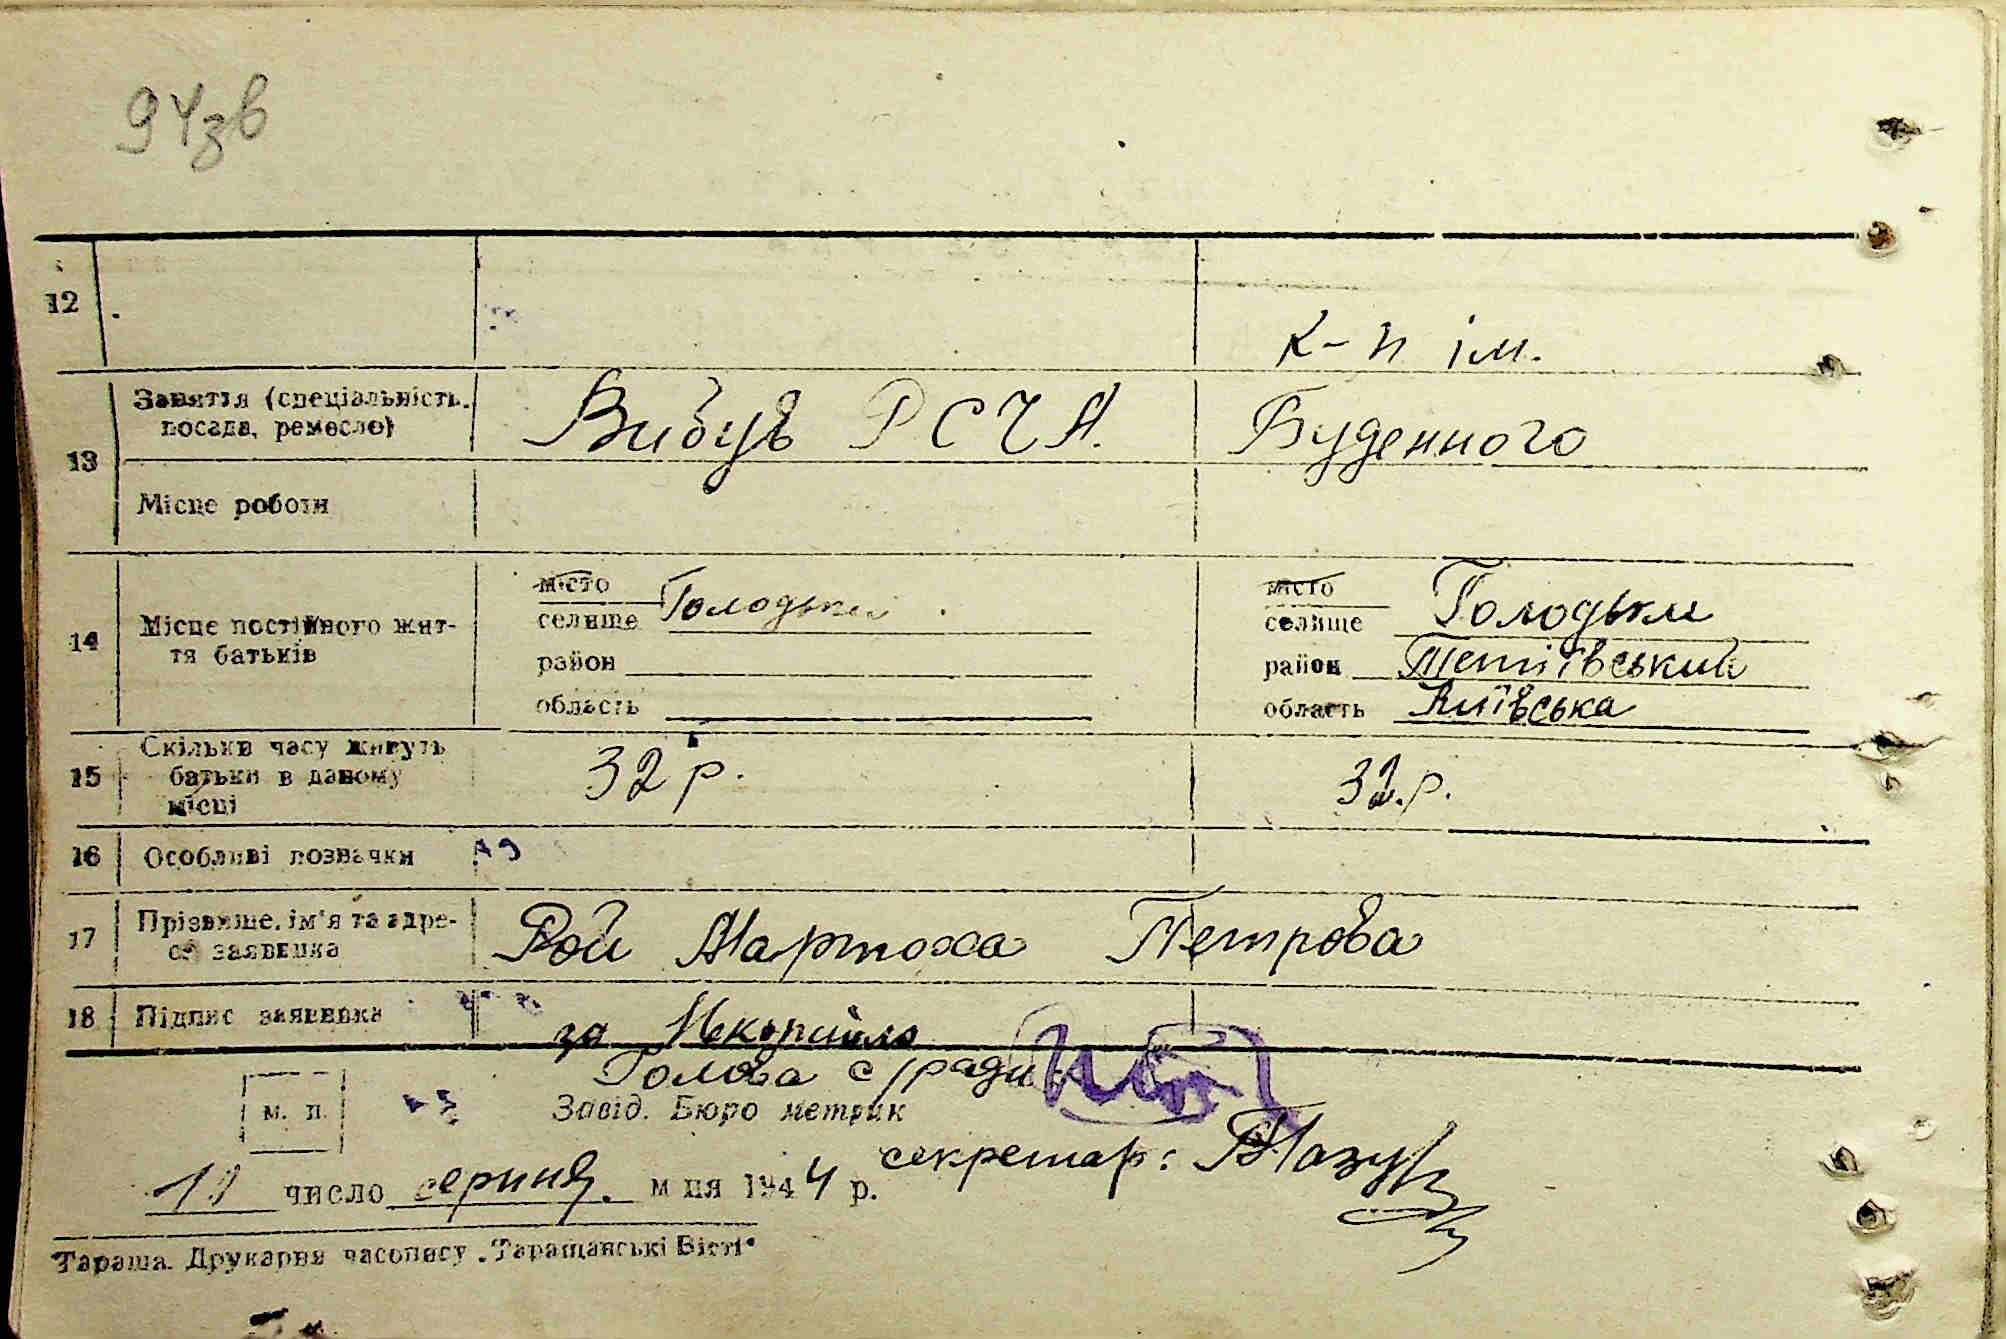 94зв
12
к-п ім.
13 Заняття (спеціальність, посада, ремесло) Вибув РСЧА. Буденного
Місце роботи
14 Місце постійного життя батьків
місто місто
селище Голодьки селище Голодьки
район район Тетіївський
область область Київська
15 Скільки часу живуть батьки в даному місці 32 р. 32.р.
16 Особливі позначки
17 Прізвище, ім'я та адреса заявника Рой Мартоха Петрова
18 Підпис заявника за
Голова с/ради
м. п. Завід. Бюро метрик
секретар:
11 число серпня м-ця 1944 р.
Тараща. Друкарня часопису „Таращанські Вісті"